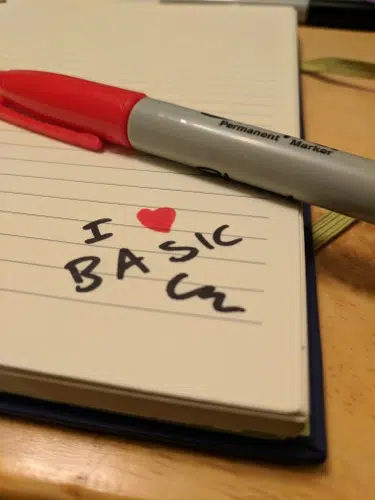 Permanent Marker
I ❤
BASIC